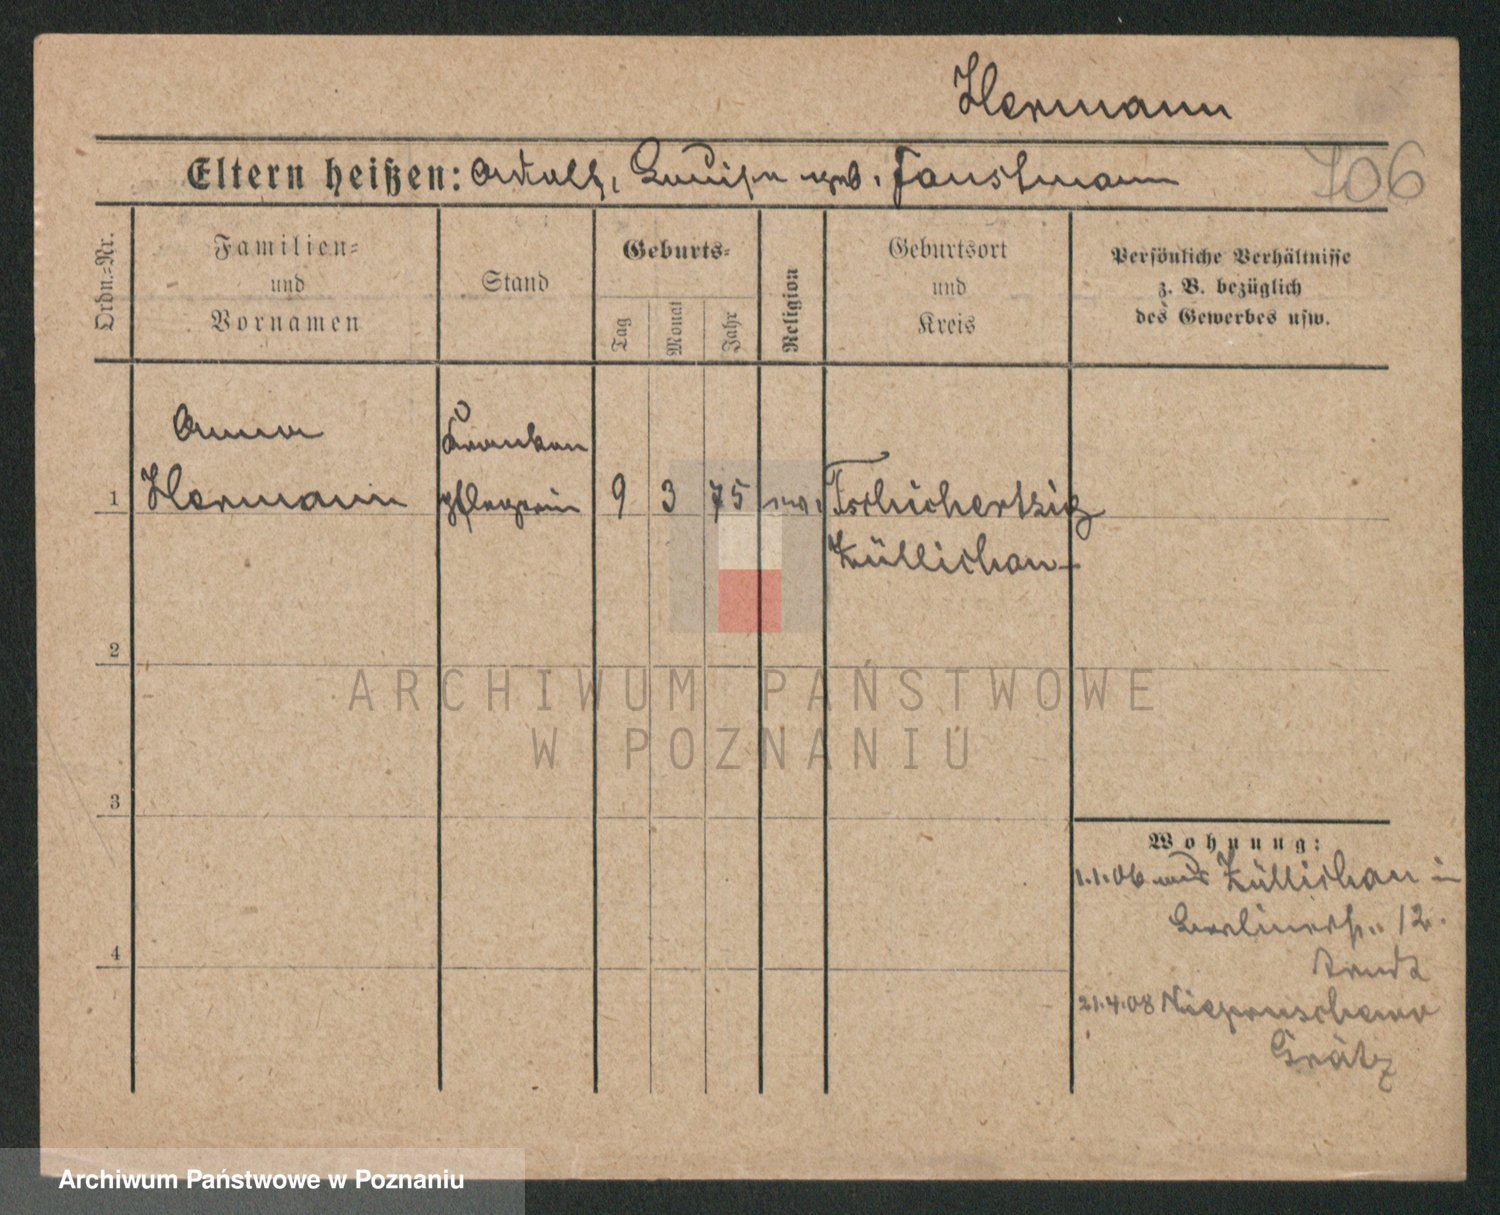 Hermann
Eltern heißen: Adolf, Luise geb. Faustmann
706
Ordn.=Nr.
Familien=
und
Vornamen
Stand
Geburts=
Tag
Monat
Jahr
Religion
Geburtsort
und
Kreis
Persönliche Verhältnisse
z. B. bezüglich
des Gewerbes usw.
Anna
Hermann
Kranken
pflegerin
1
9 3 75 ev. Tschichertzig
Züllichau
2
ARCHIWUM PAŃSTWOWE
W POZNANIU
3
Wohnung:
1.1.06 aus Züllichau in
Berlinerstr. 12.
4
21.4.08
Grätz
Archiwum Państwowe w Poznaniu